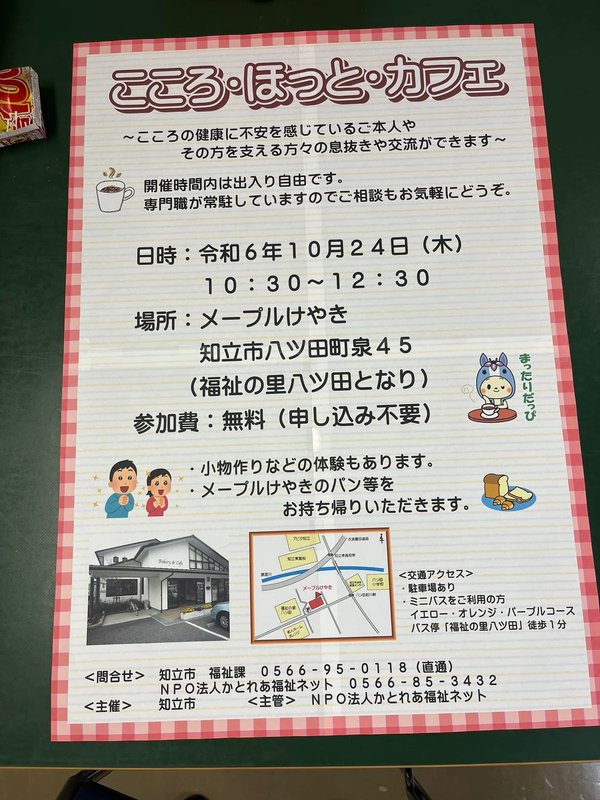 こころ・ほっと・カフェ
～こころの健康に不安を感じているご本人や
その方を支える方々の息抜きや交流ができます～
開催時間内は出入り自由です。
専門職が常駐していますのでご相談もお気軽にどうぞ。
日時：令和６年１０月２４日（木）
１０：３０～１２：３０
場所：メープルけやき
知立市八ツ田町泉４５
（福祉の里八ツ田となり）
参加費：無料（申し込み不要）
まったりだっぴ
・小物作りなどの体験もあります。
・メープルけやきのパン等を
お持ち帰りいただきます。
Bakery & Cafe
アピタ知立
知立東高校
メープルけやき
福祉の里
八ツ田
八ツ田
小学校
＜交通アクセス＞
・駐車場あり
・ミニバスをご利用の方
イエロー・オレンジ・パープルコース
バス停「福祉の里八ツ田」徒歩１分
＜問合せ＞ 知立市 福祉課 ０５６６－９５－０１１８（直通）
ＮＰＯ法人かとれあ福祉ネット ０５６６－８５－３４３２
＜主催＞ 知立市 ＜主管＞ ＮＰＯ法人かとれあ福祉ネット